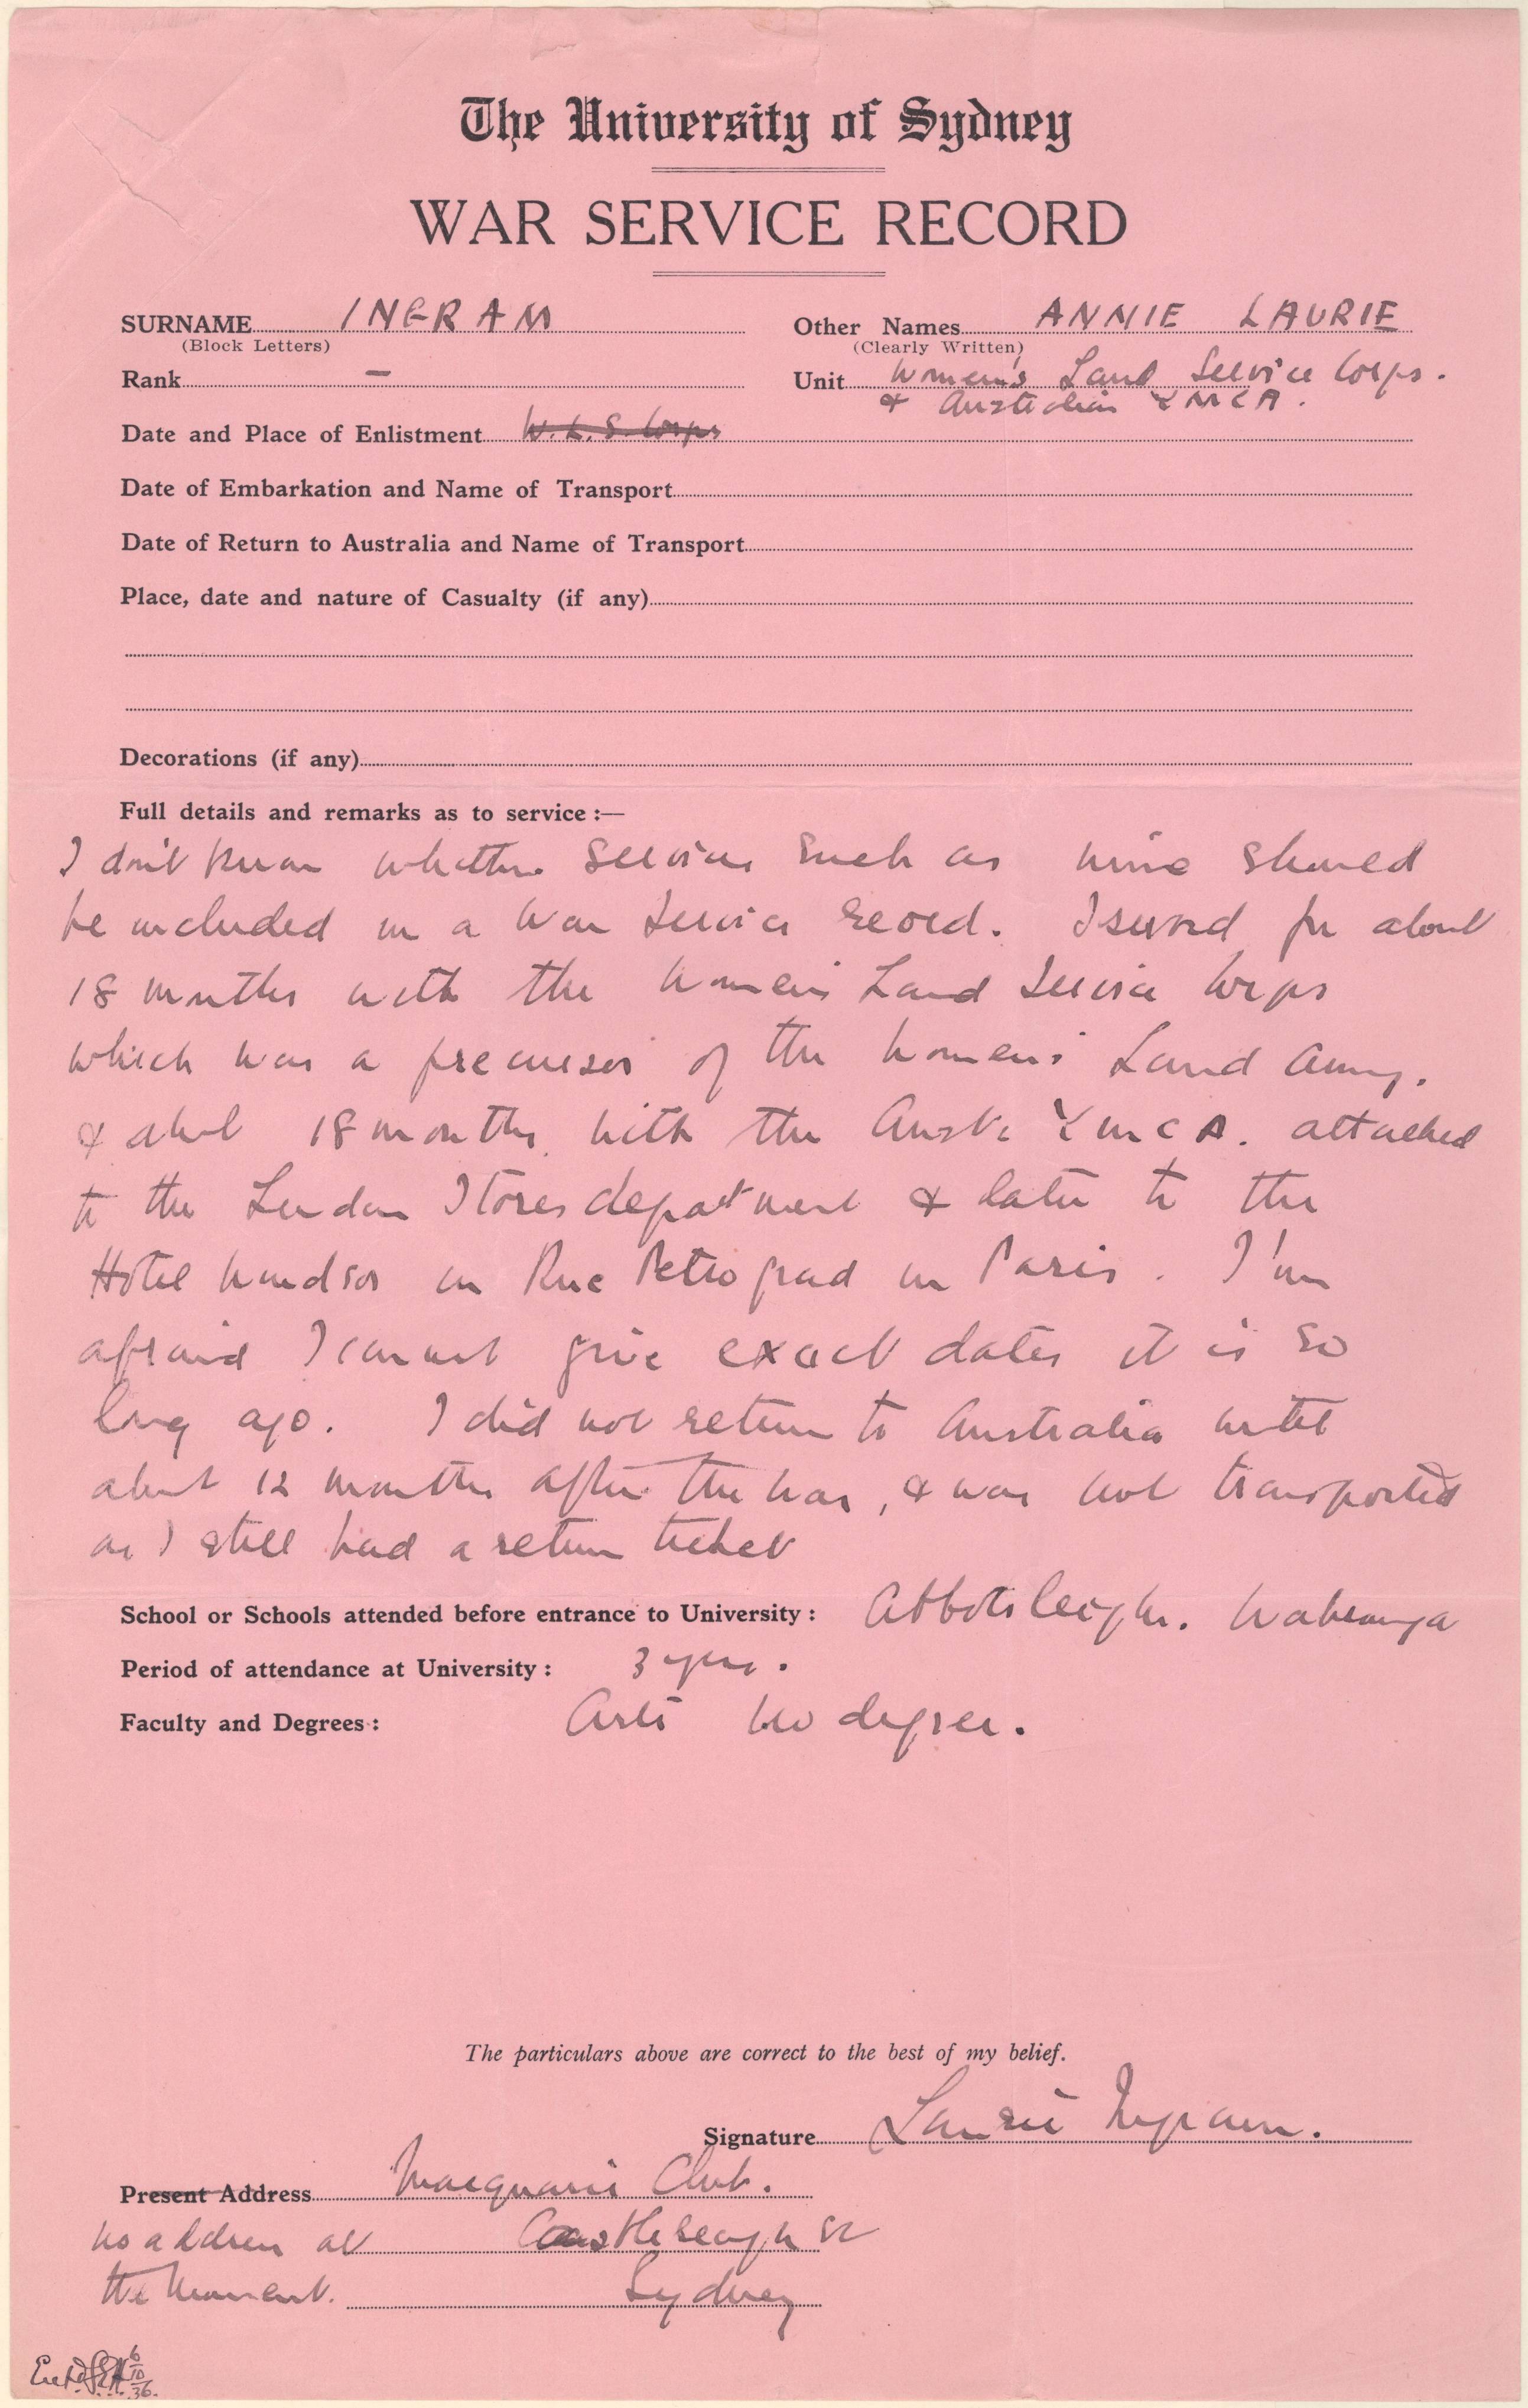 The University of Sydney
WAR SERVICE RECORD
SURNAME INGRAM Other Names ANNIE LAURIE
(Block Letters) (Clearly Written)
Rank – Unit Women's Land Service Corps.
& Australian YMCA.
Date and Place of Enlistment W.L.S. Corps
Date of Embarkation and Name of Transport
Date of Return to Australia and Name of Transport
Place, date and nature of Casualty (if any)
Decorations (if any)
Full details and remarks as to service :—
I don't know whether service such as mine should
be included in a War Service record. I served for about
18 months with the Women's Land Service Corps
which was a precursor of the Women's Land Army.
& about 18 months with the Aust. YMCA. attached
to the London Stores department & later to the
Hotel Windsor in Rue Petrograd in Paris. I'm
afraid I cannot give exact dates it is so
long ago. I did not return to Australia until
about 12 months after the war, & was not transported
as I still had a return ticket
School or Schools attended before entrance to University : Abbotsleigh. Wahroonga
Period of attendance at University : 3 years.
Faculty and Degrees : Arts No degree.
The particulars above are correct to the best of my belief.
Signature Laurie Ingram.
Present Address Macquarie Club.
no address at Castlereagh St
the moment. Sydney
6/10/36.